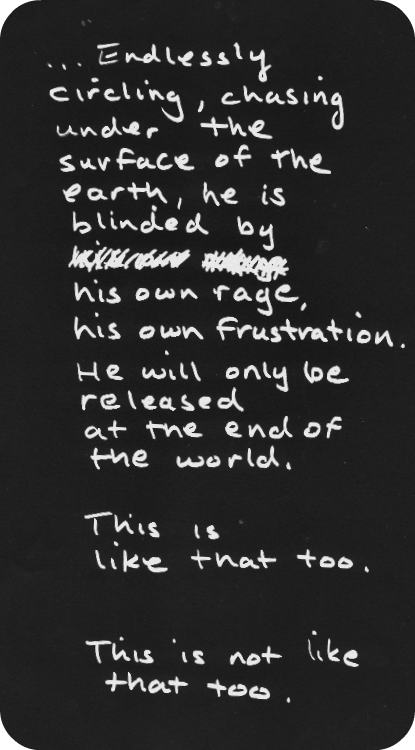 ... Endlessly
circling, chasing
under the
surface of the
earth, he is
blinded by
his own rage,
his own frustration.
He will only be
released
at the end of
the world.
This is
like that too.
This is not like
that too.